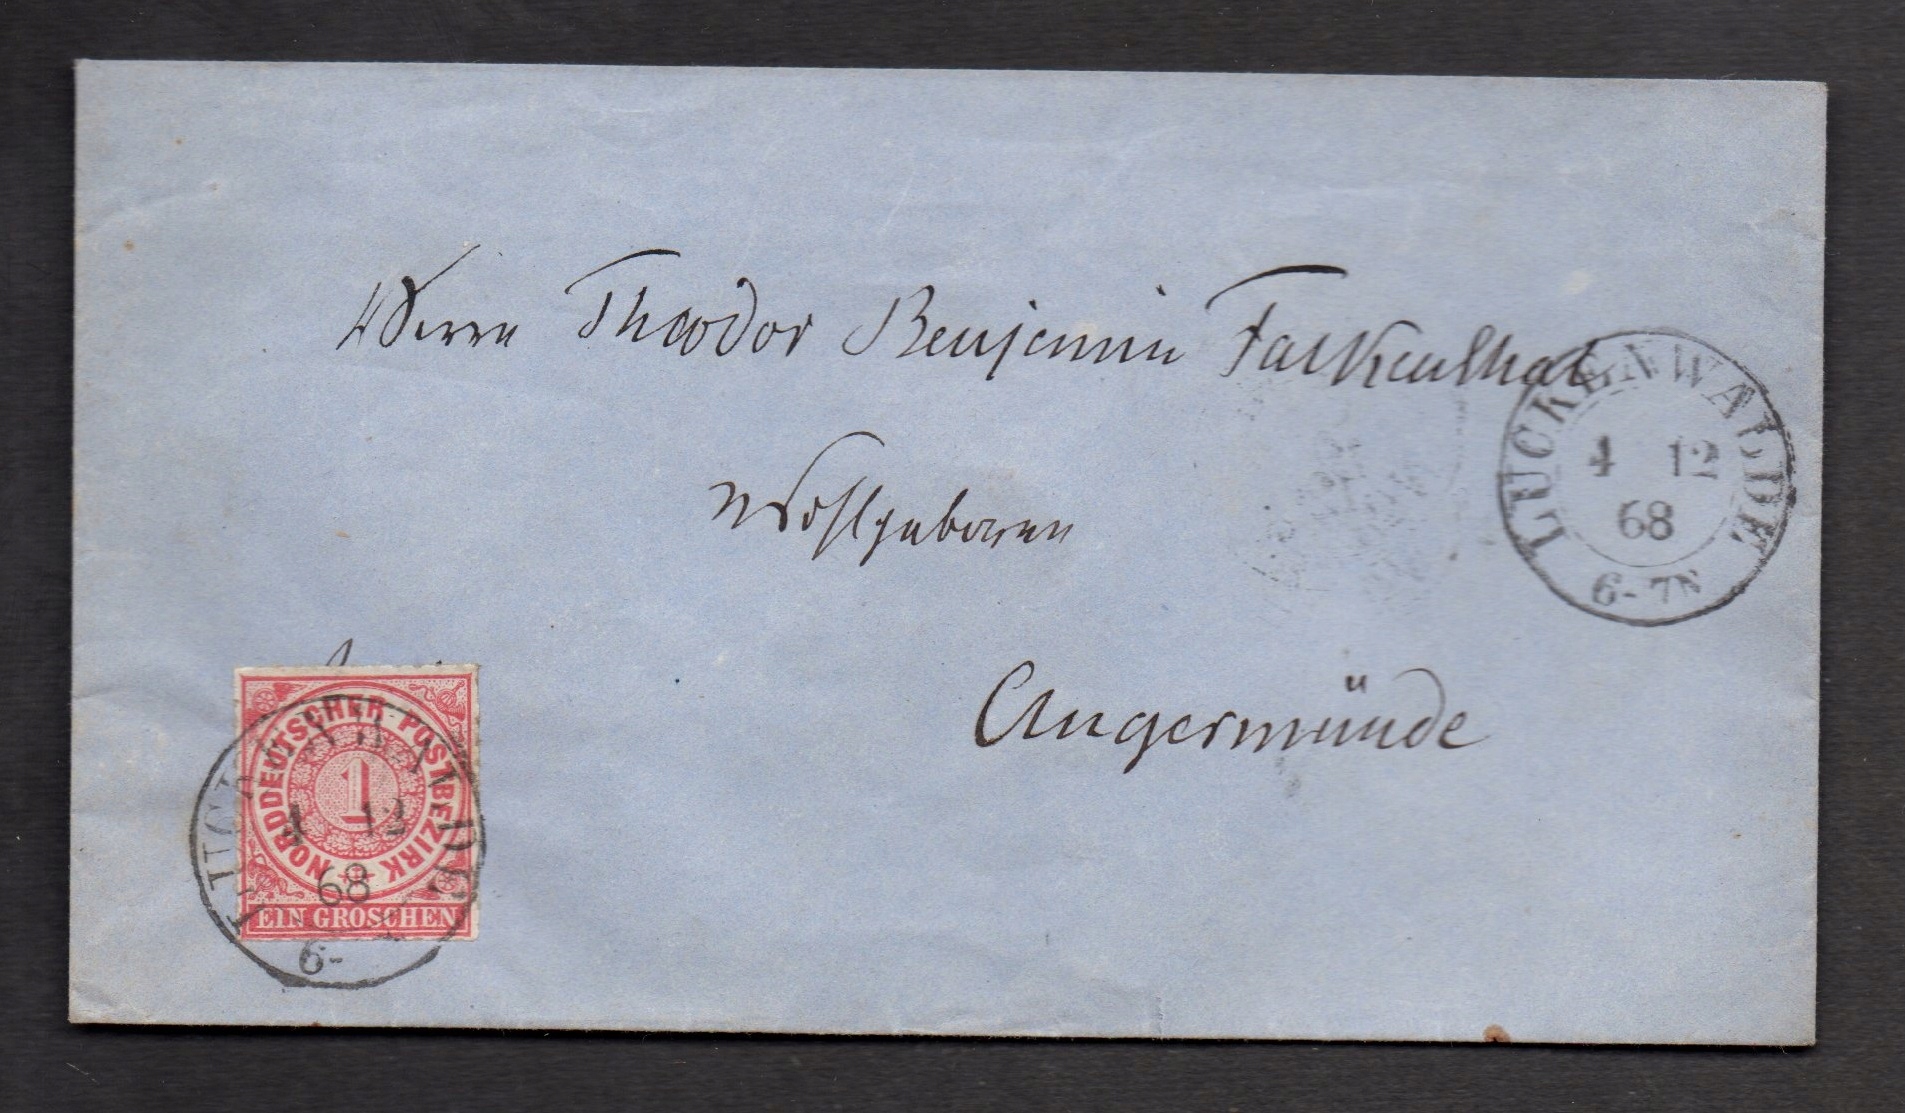 Herrn Theodor Benjamin Falkenthal
Wohlgeboren
Angermünde
LUCKENWALDE
4 12
68
6-7N
NORDDEUTSCHER POSTBEZIRK
1
EIN GROSCHEN
LUCKENWALDE
4 12
68
6-